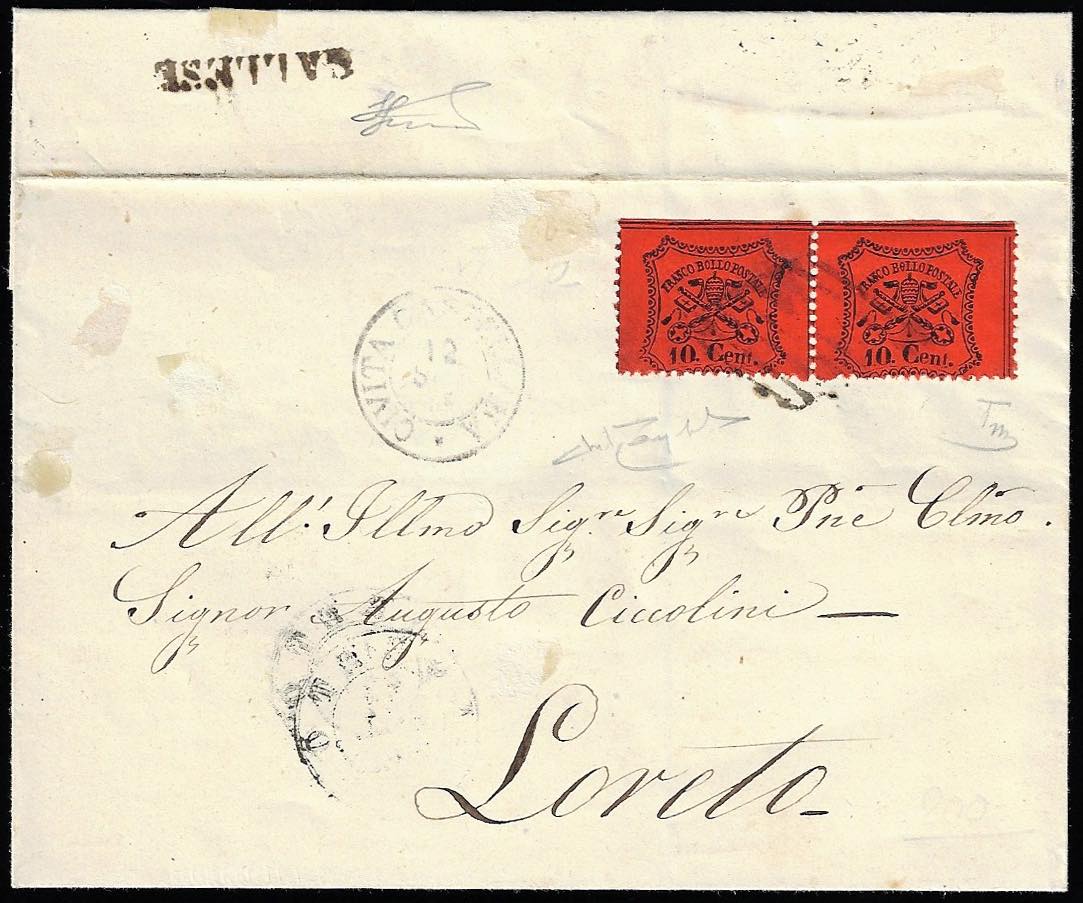 GALLESE
FRANCO BOLLO POSTALE
10. Cent.
FRANCO BOLLO POSTALE
10. Cent.
CIVITA CASTELLANA
12
All'. Illmo Sigre. Sigre Pne Clmo.
Signor Augusto Ciccolini —
Loreto